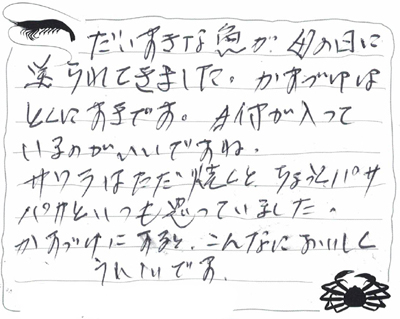 だいすきな魚が、母の日に
送られてきました。かすづけは
とくにすきです。日付が入って
いるのがいいですね。
サワラはただ焼くと、ちょっとパサ
パサといつも思っていました。
かすづけにすると、こんなにおいしく
うれしいです。